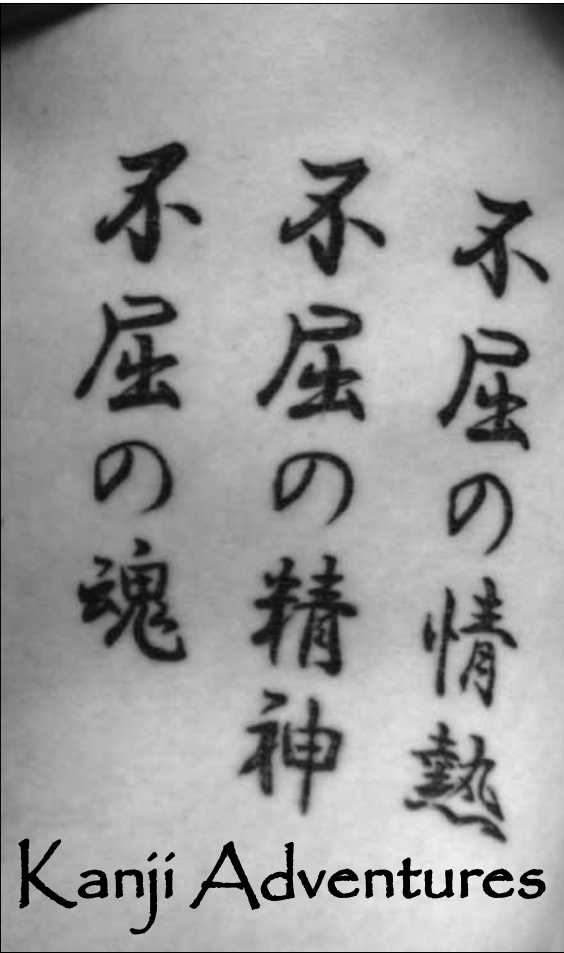 不屈の情熱
不屈の精神
不屈の魂
Kanji Adventures